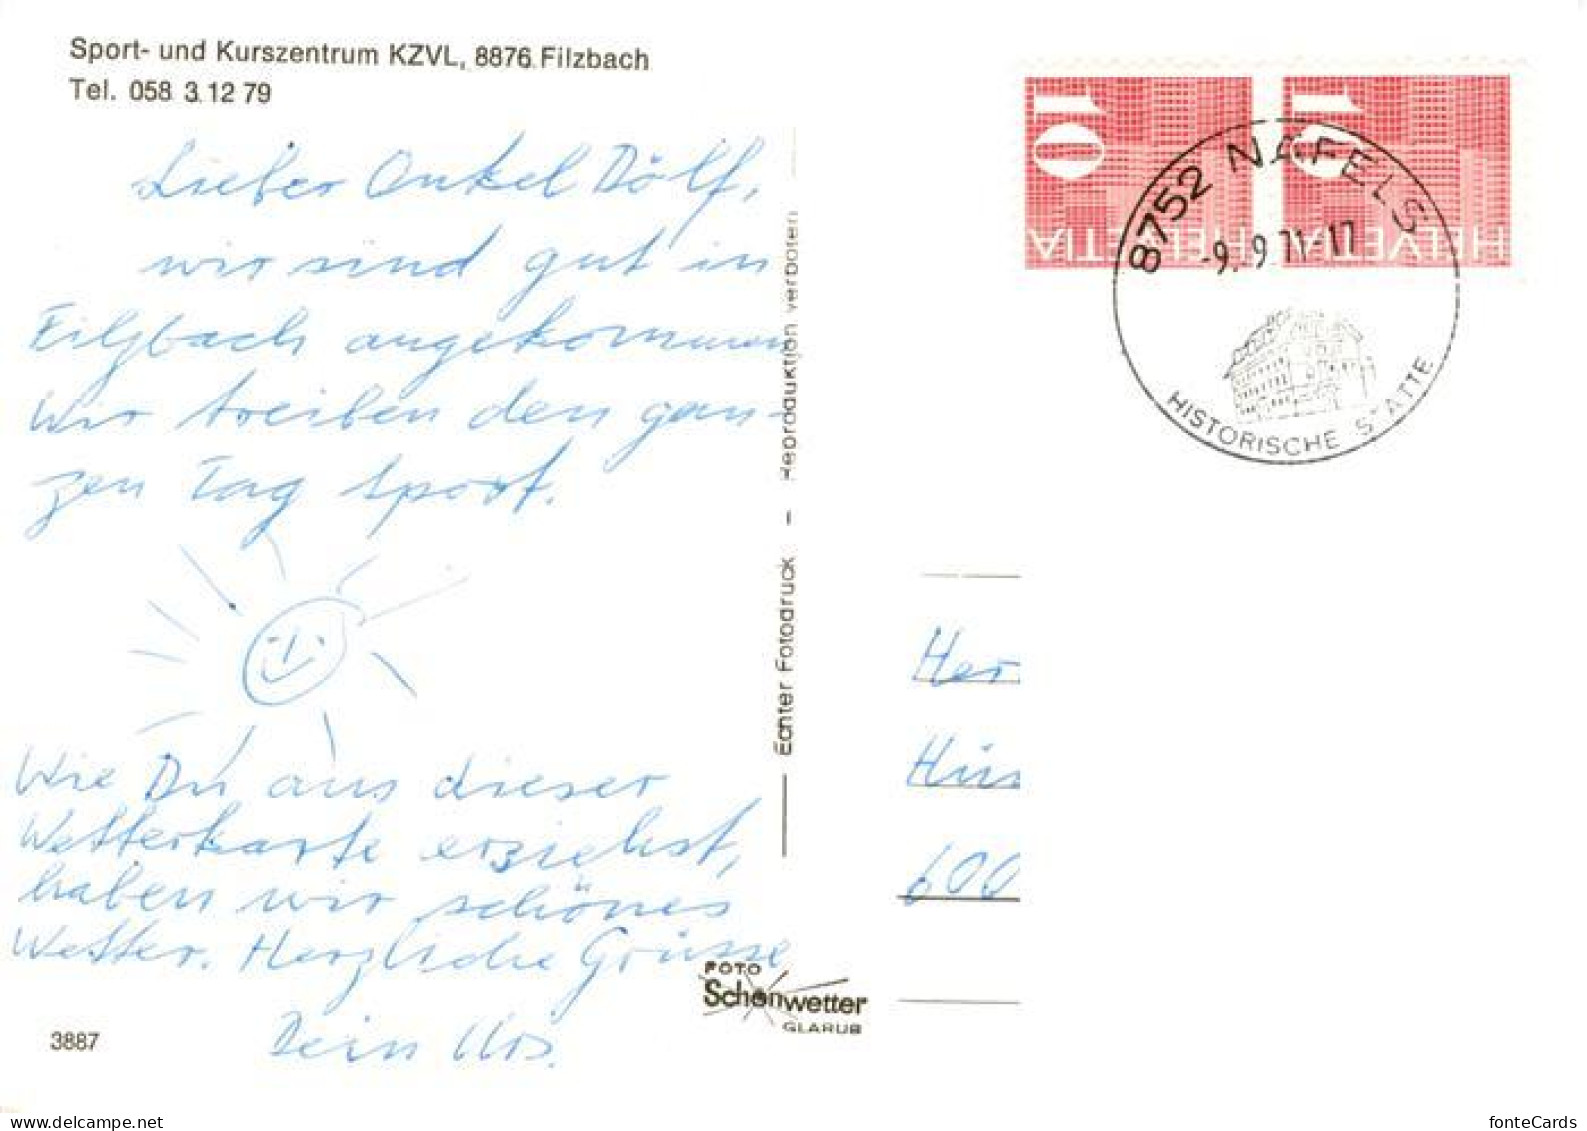 Sport- und Kurszentrum KZVL, 8876 Filzbach
Tel. 058 3 12 79
Lieber Onkel Dölf,
wir sind gut in
Filzbach angekommen
Wir treiben den gan-
zen Tag Sport.
Wie Du aus dieser
Wetterkarte erziehst,
haben wir schönes
Wetter. Herzliche Grüsse
Dein Urs.
3887
Echter Fotodruck – Reproduktion verboten
FOTO
Schönwetter
GLARUS
10 HELVETIA
10 HELVETIA
8752 NÄFELS
-9.-9 71-17
HISTORISCHE STÄTTE
Her
Hin
600
www.delcampe.net
fonteCards